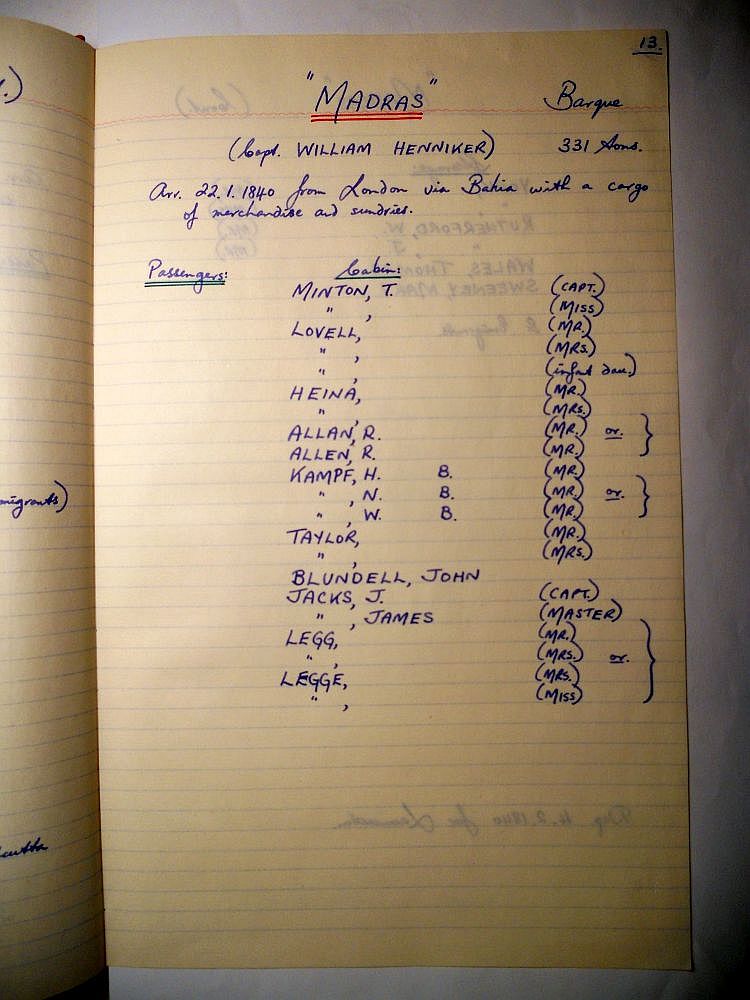 13.
"MADRAS" Barque
(Capt. WILLIAM HENNIKER) 331 tons.
Arr. 22.1.1840 from London via Bahia with a cargo
of merchandise and sundries.
Passengers: Cabin:
MINTON, T. (CAPT.)
" , (MISS)
LOVELL, (MR.)
" , (MRS.)
" , (infant dau.)
HEINA, (MR.)
" , (MRS.)
ALLAN, R. (MR.) or. }
ALLEN, R. (MR.)
KAMPF, H. B. (MR.)
" , N. B. (MR.) or. }
" , W. B. (MR.)
TAYLOR, (MR.)
" , (MRS.)
BLUNDELL, JOHN
JACKS, J. (CAPT.)
" , JAMES (MASTER)
LEGG, (MR.)
" , (MRS.) or. }
LEGGE, (MRS.)
" , (MISS)